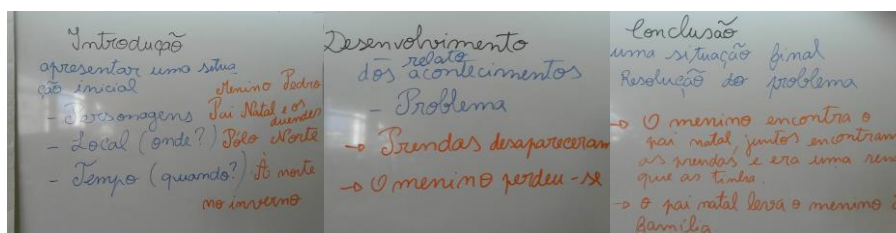 Introdução
apresentar uma situa-
ção inicial
Menino Pedro
- Personagens Pai Natal e os
duendes
- Local (onde?) Pólo Norte
- Tempo (quando?) À noite
no inverno
Desenvolvimento
relato
dos acontecimentos
- Problema
→ Prendas desapareceram
→ O menino perdeu-se
Conclusão
uma situação final
Resolução do problema
→ O menino encontra o
pai natal, juntos encontram
as prendas e era uma rena
que as tinha.
→ o pai natal leva o menino à
família